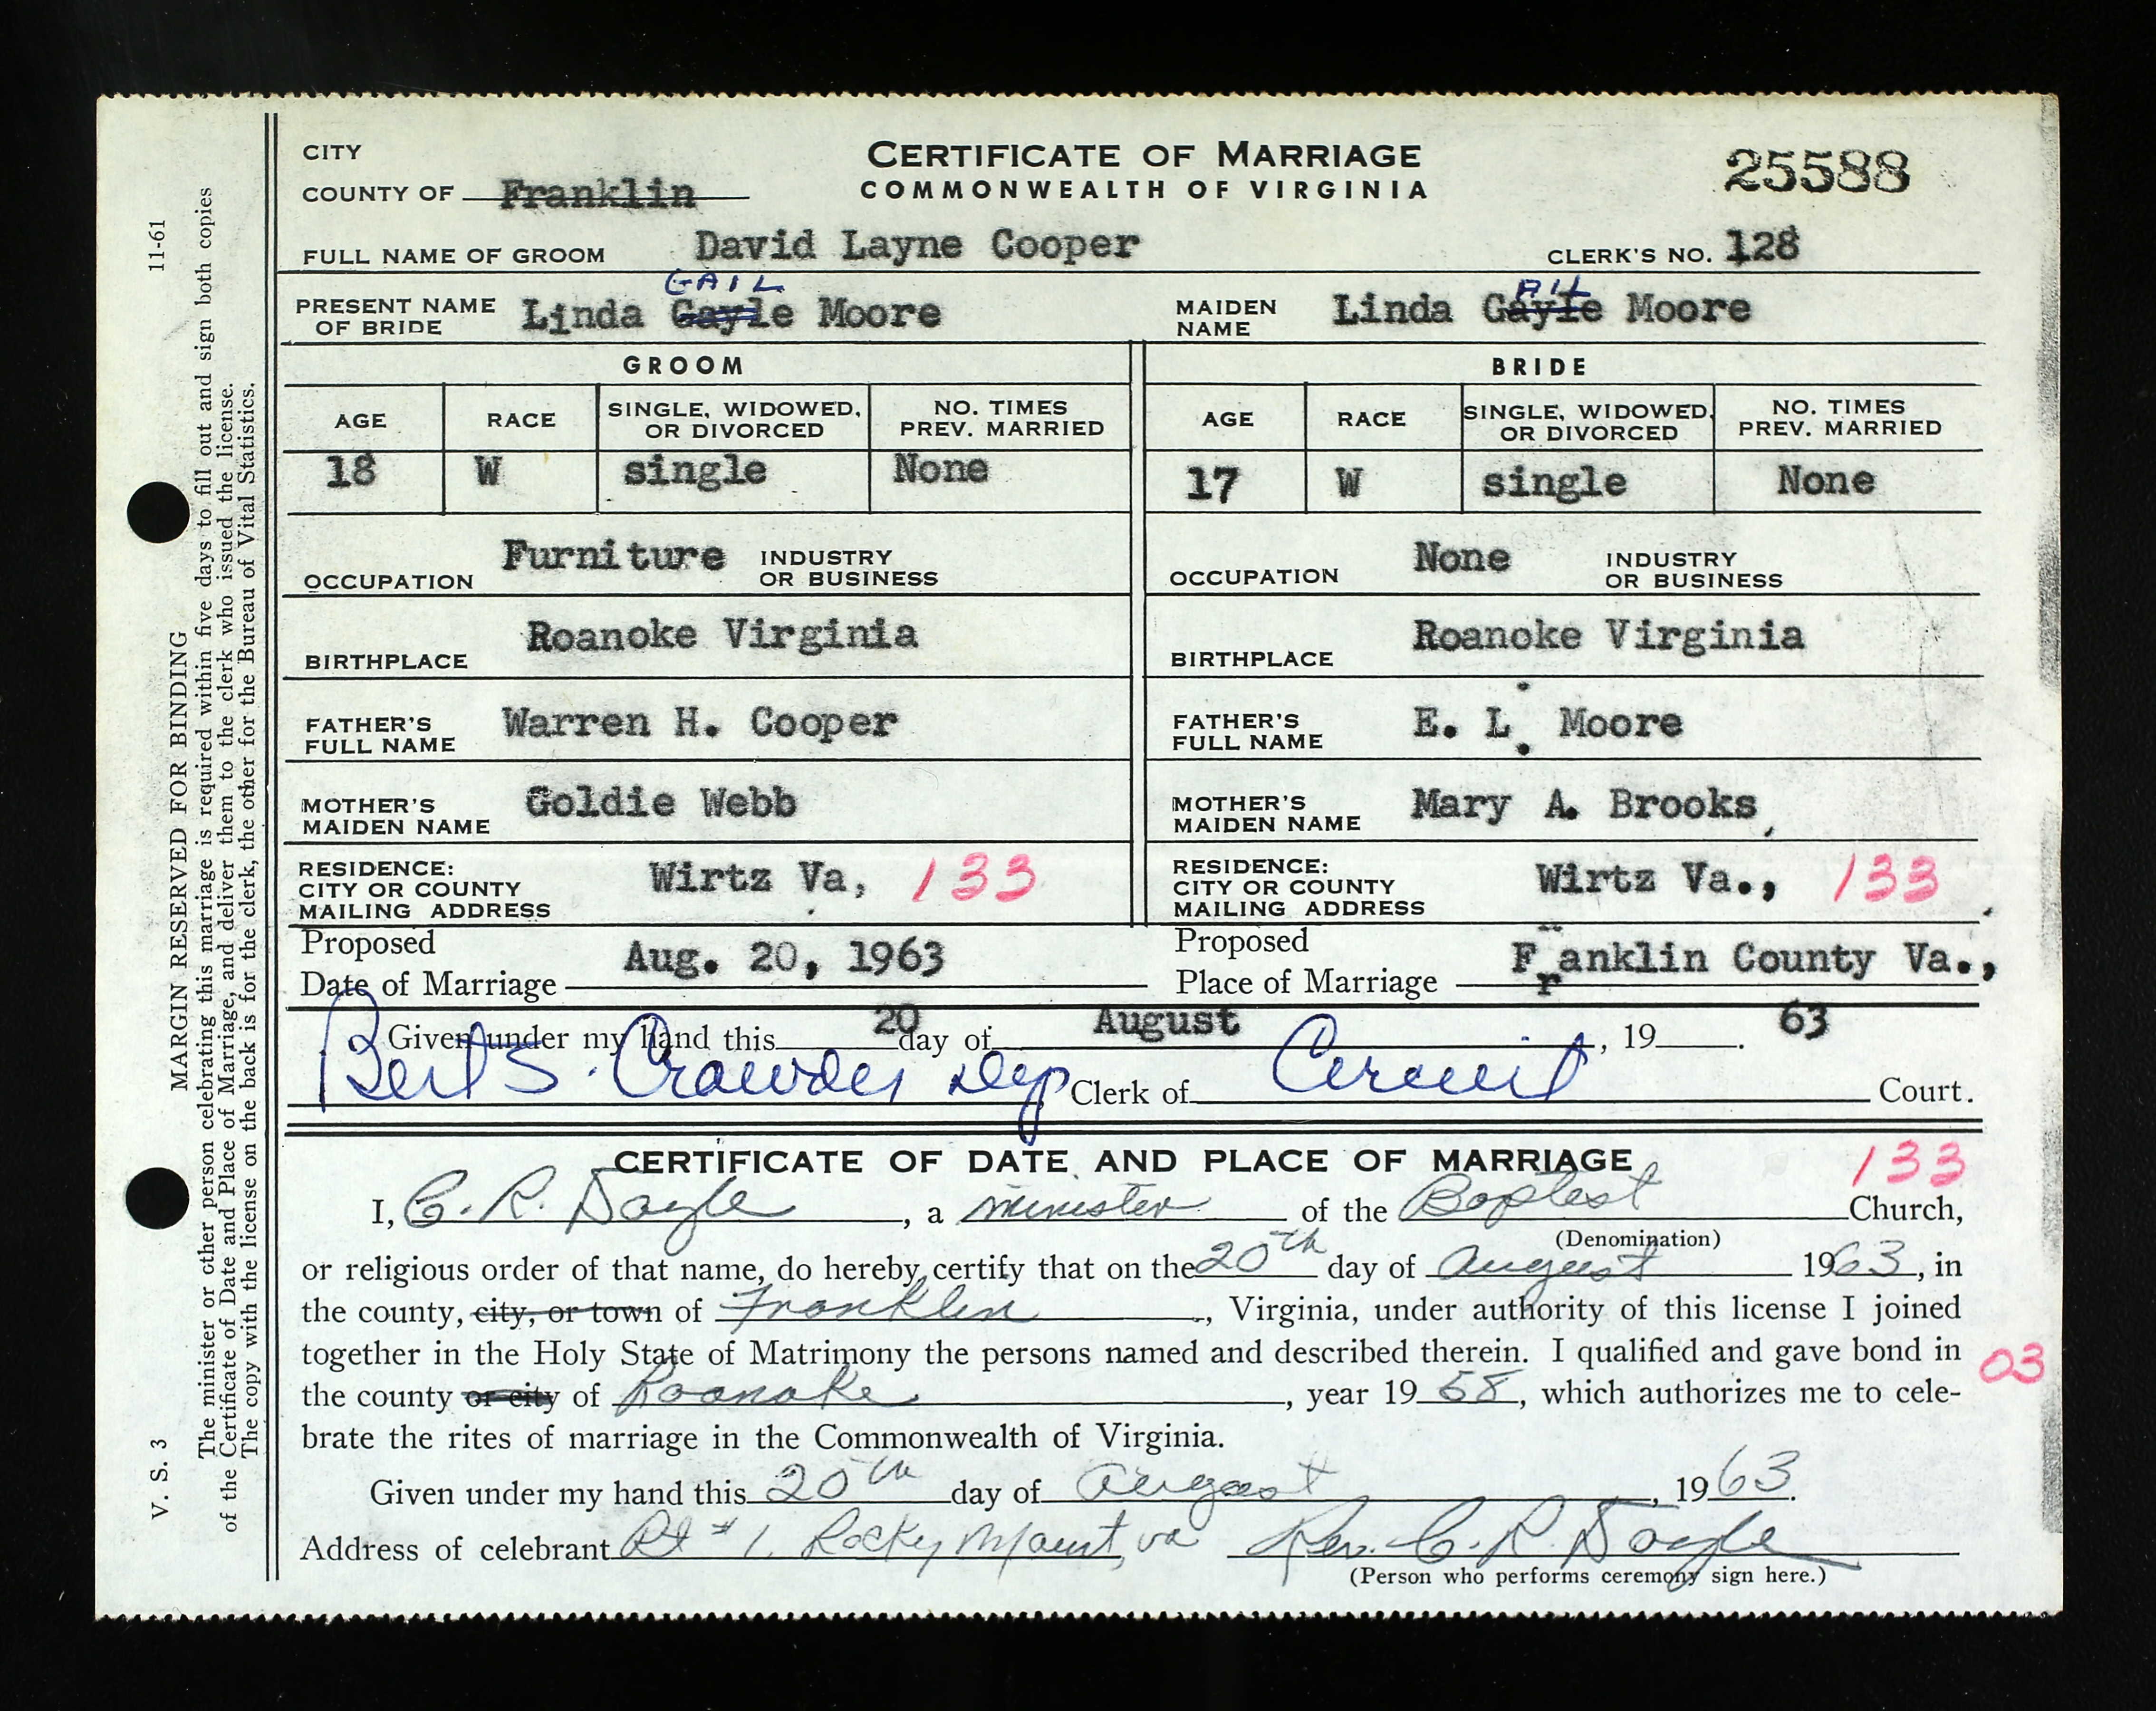 CITY
COUNTY OF Franklin
CERTIFICATE OF MARRIAGE
COMMONWEALTH OF VIRGINIA
25588
FULL NAME OF GROOM David Layne Cooper CLERK'S NO. 128
GAIL
PRESENT NAME OF BRIDE Linda Gayle Moore
AIL
MAIDEN NAME Linda Gayle Moore
GROOM
AGE RACE SINGLE, WIDOWED, OR DIVORCED NO. TIMES PREV. MARRIED
18 W single None
OCCUPATION Furniture INDUSTRY OR BUSINESS
BIRTHPLACE Roanoke Virginia
FATHER'S FULL NAME Warren H. Cooper
MOTHER'S MAIDEN NAME Goldie Webb
RESIDENCE: CITY OR COUNTY MAILING ADDRESS Wirtz Va, 133
BRIDE
AGE RACE SINGLE, WIDOWED, OR DIVORCED NO. TIMES PREV. MARRIED
17 W single None
OCCUPATION None INDUSTRY OR BUSINESS
BIRTHPLACE Roanoke Virginia
FATHER'S FULL NAME E. L. Moore
MOTHER'S MAIDEN NAME Mary A. Brooks
RESIDENCE: CITY OR COUNTY MAILING ADDRESS Wirtz Va., 133
Proposed Date of Marriage Aug. 20, 1963
Proposed Place of Marriage Franklin County Va.,
Given under my hand this 20 day of August, 19 63.
Bert S. Crowder Dep Clerk of Circuit Court.
CERTIFICATE OF DATE AND PLACE OF MARRIAGE 133
I, C. R. Doyle, a minister of the Baptest Church,
(Denomination)
or religious order of that name, do hereby certify that on the 20th day of August 1963, in
the county, city, or town of Franklin, Virginia, under authority of this license I joined
together in the Holy State of Matrimony the persons named and described therein. I qualified and gave bond in
03
the county or city of Roanoke, year 19 58, which authorizes me to cele-
brate the rites of marriage in the Commonwealth of Virginia.
Given under my hand this 20th day of August, 1963.
Address of celebrant Rt #1, Rocky Mount, Va Rev. C. R. Doyle
(Person who performs ceremony sign here.)
V. S. 3 MARGIN RESERVED FOR BINDING 11-61
The minister or other person celebrating this marriage is required within five days to fill out and sign both copies
of the Certificate of Date and Place of Marriage, and deliver them to the clerk who issued the license.
The copy with the license on the back is for the clerk, the other for the Bureau of Vital Statistics.